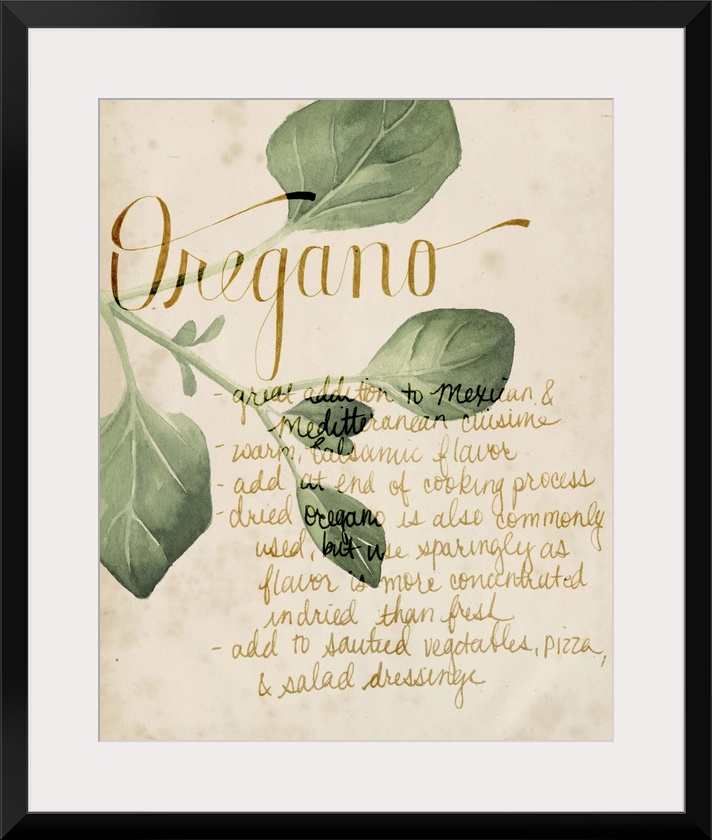 Oregano
- great addition to Mexican &
Meditteranean cuisime
- warm, balsamic flavor
- add at end of cooking process
- dried oregano is also commonly
used, but use sparingly as
flavor is more concentrated
in dried than fresh
- add to sautied vegetables, pizza,
& salad dressings